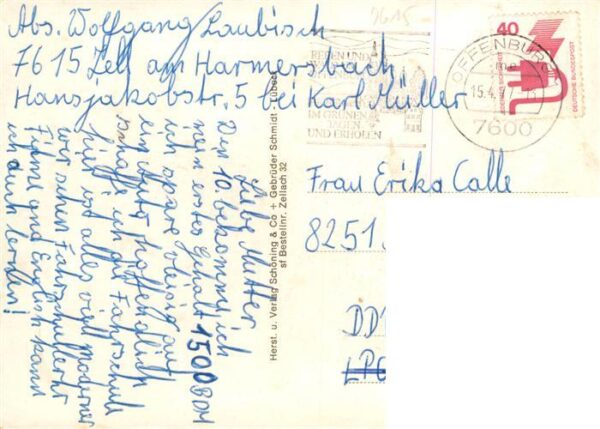 Abs. Wolfgang Laubisch
7615 Zell am Harmersbach
Hansjakobstr. 5 bei Karl Müller
7615
REBEN UND
IM GRÜNEN
TAGEN
UND ERHOLEN
OFFENBURG
15.4.
7600
40
DEUTSCHE BUNDESPOST
Frau Erika Calle
8251
DD
LPG
Herst. u. Verlag Schöning & Co + Gebrüder Schmidt · Lübeck
sf Bestellnr. Zellach 32
Liebe Mutter
Den 10. bekomm ich
mein erstes Gehalt 1500 DM
ich spare riesig auf
ein Auto, hoffentlich
schaffe ich die Fahrschule
hier ist alles viel moderner
wir sehen Fahrschullehr
Filme und Englisch kann
ich auch lernen!